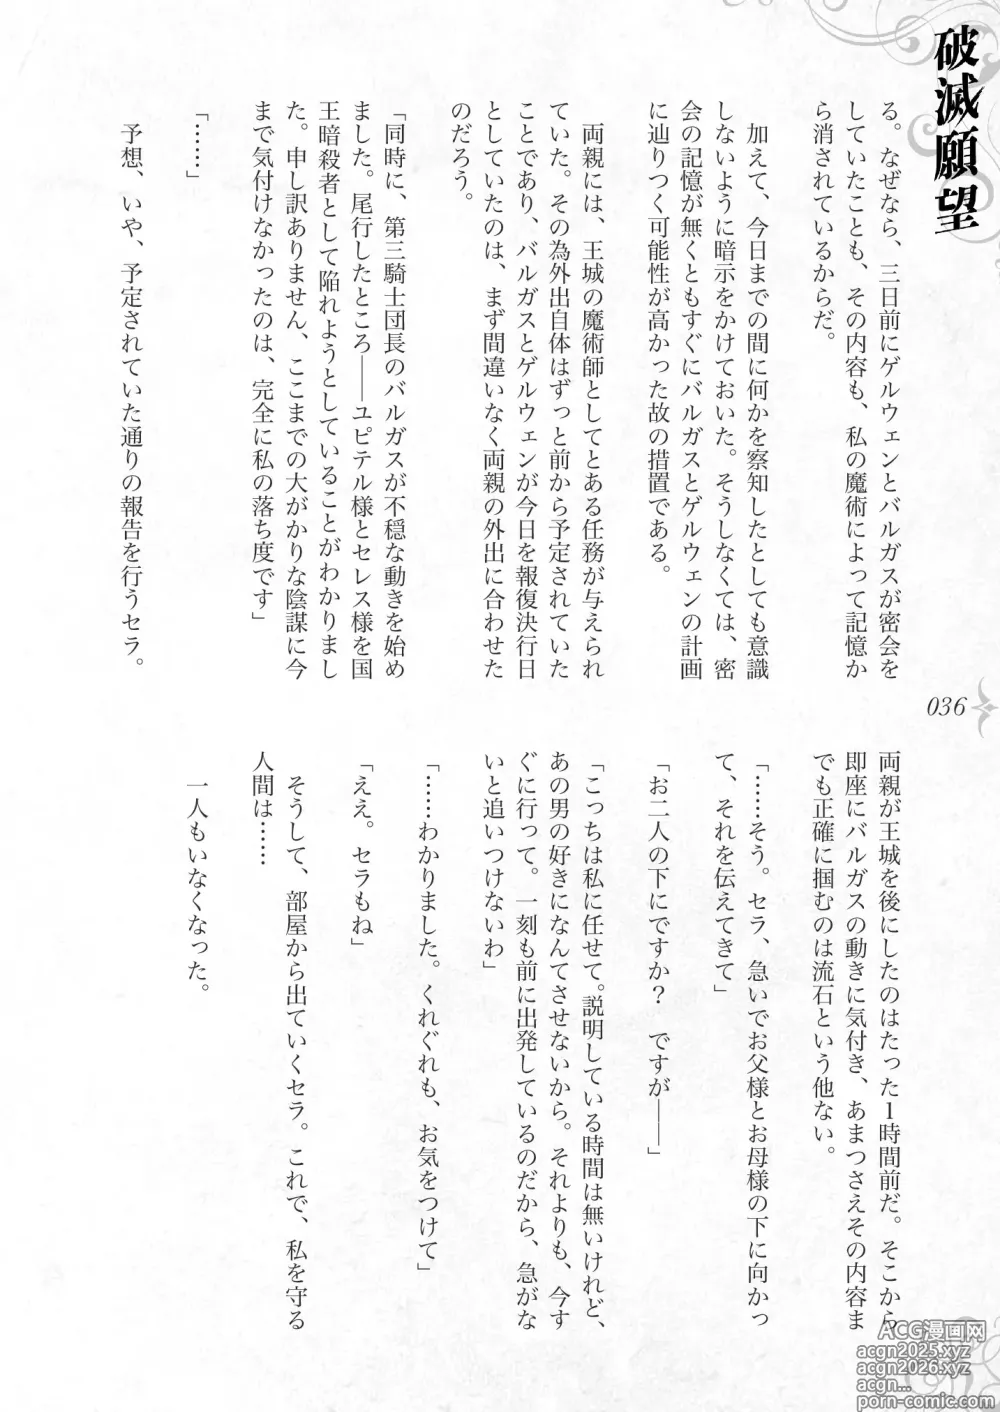 破滅願望
る。なぜなら、三日前にゲルウェンとバルガスが密会を
していたことも、その内容も、私の魔術によって記憶か
ら消されているからだ。
加えて、今日までの間に何かを察知したとしても意識
しないように暗示をかけておいた。そうしなくては、密
会の記憶が無くともすぐにバルガスとゲルウェンの計画
に辿りつく可能性が高かった故の措置である。
両親には、王城の魔術師としてとある任務が与えられ
ていた。その為外出自体はずっと前から予定されていた
ことであり、バルガスとゲルウェンが今日を報復決行日
としていたのは、まず間違いなく両親の外出に合わせた
のだろう。
「同時に、第三騎士団長のバルガスが不穏な動きを始め
ました。尾行したところ――ユピテル様とセレス様を国
王暗殺者として陥れようとしていることがわかりまし
た。申し訳ありません、ここまでの大がかりな陰謀に今
まで気付けなかったのは、完全に私の落ち度です」
「……」
予想、いや、予定されていた通りの報告を行うセラ。
036
両親が王城を後にしたのはたった１時間前だ。そこから
即座にバルガスの動きに気付き、あまつさえその内容ま
でも正確に掴むのは流石という他ない。
「……そう。セラ、急いでお父様とお母様の下に向かっ
て、それを伝えてきて」
「お二人の下にですか？　ですが――」
「こっちは私に任せて。説明している時間は無いけれど、
あの男の好きになんてさせないから。それよりも、今す
ぐに行って。一刻も前に出発しているのだから、急がな
いと追いつけないわ」
「……わかりました。くれぐれも、お気をつけて」
「ええ。セラもね」
そうして、部屋から出ていくセラ。これで、私を守る
人間は……
一人もいなくなった。
ACG漫画网
acgn2025.xyz
acgn2026.xyz
acgn...
porn-comic.com